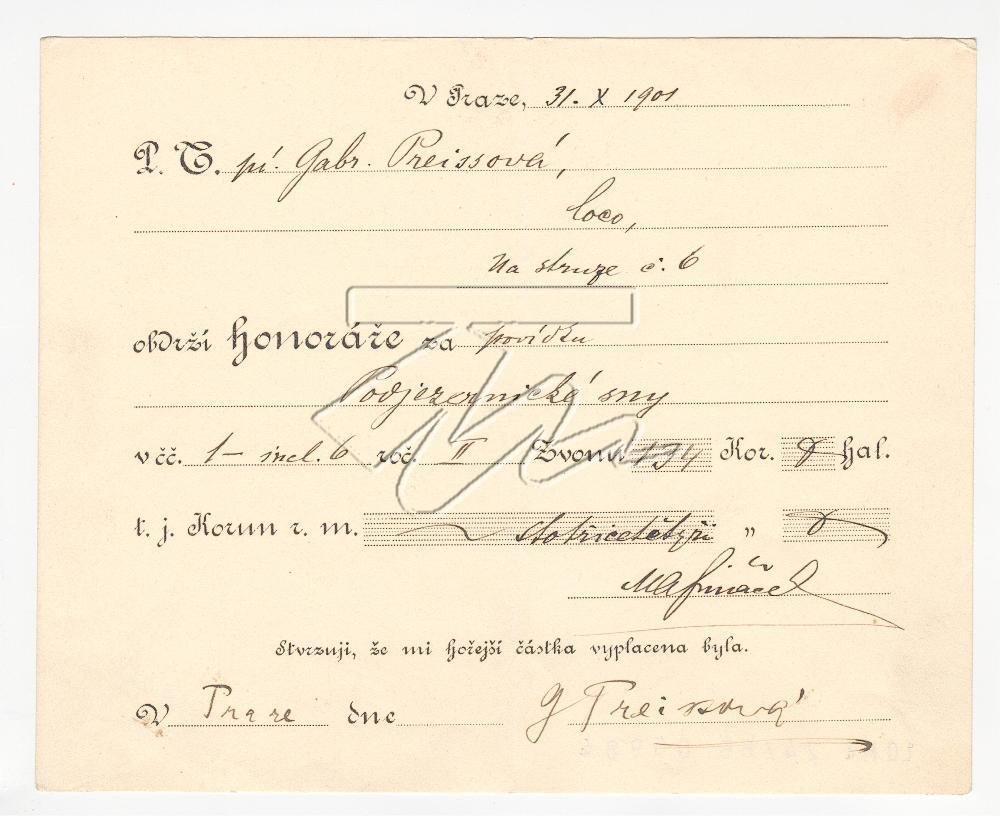 V Praze, 31. X 1901
P. T. pí. Gabr. Preissová,
loco,
Na struze č. 6
obdrží honoráře za povídku
Podjezernické sny
v čč. 1 – incl. 6 roč. II Zvonu 134 Kor. hal.
t. j. Korun r. m. stotřicetčtyři "
MAŠimáček
Stvrzuji, že mi hořejší částka vyplacena byla.
V Praze dne G Preissová